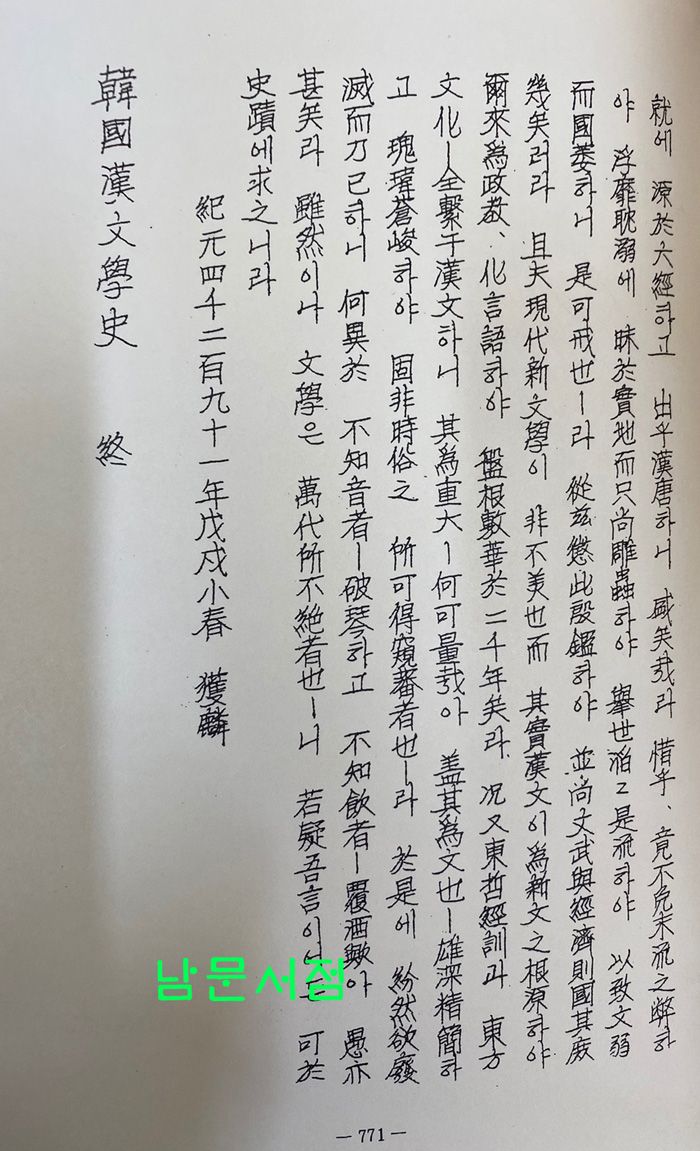 就에 源於六經하고 出乎漢唐하니 盛矣哉라 惜乎、竟不免末流之弊하
야 浮靡耽溺에 昧於實地而只尚雕蟲하야 擧世滔々是流하야 以致文弱
而國萎하니 是可戒也ㅣ라 從玆懲此殷鑑하야 並尚文武與經濟則國其庶
幾矣러라 且夫現代新文學이 非不美也而 其實漢文이 爲新文之根源하야
爾來爲政敎、化言語하야 盤根敷華於二千年矣라 况又東哲經訓과 東方
文化ㅣ全繫于漢文하니 其爲重大ㅣ何可量哉아 盖其爲文也ㅣ雄深精簡하
고 瑰瑋蒼峻하야 固非時俗之 所可得窺審者也ㅣ라 於是에 紛然欲廢
滅而乃已하니 何異於 不知音者ㅣ破琴하고 不知飮者ㅣ覆酒歟아 愚亦
甚矣라 雖然이나 文學은 萬代所不絕者也ㅣ니 若疑吾言이 可於
史蹟에求之니라
紀元四千二百九十一年戊戌小春 獲麟
韓國漢文學史 終
남문서점
— 771 —